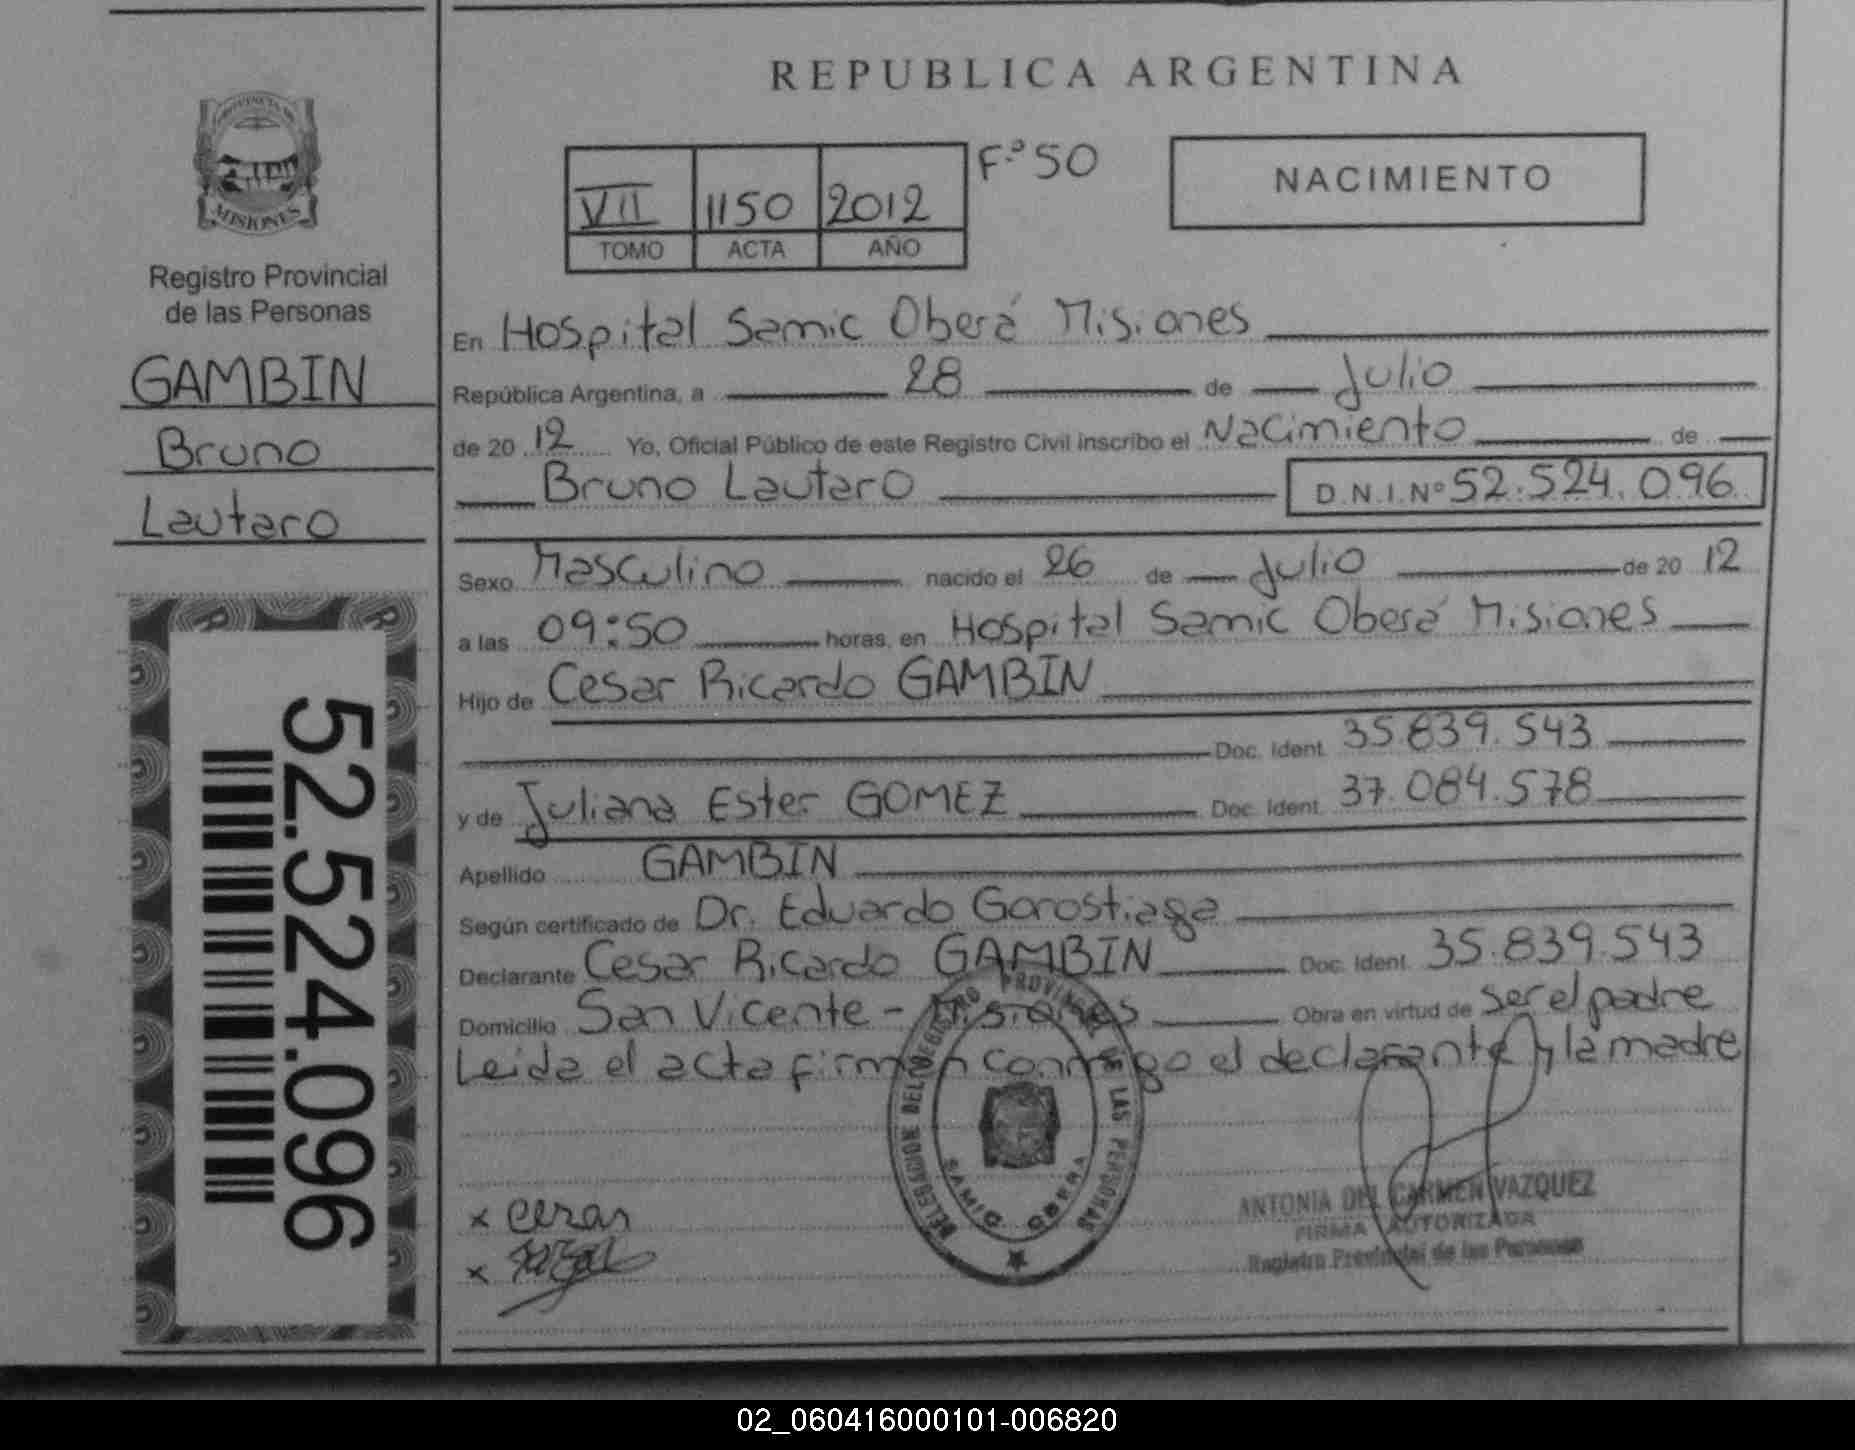 PROVINCIA DE
MISIONES
Registro Provincial
de las Personas
GAMBIN
Bruno
Lautaro
52.524.096
REPUBLICA ARGENTINA
VII 1150 2012 Fº 50
TOMO ACTA AÑO
NACIMIENTO
En Hospital Samic Oberá Misiones
República Argentina, a 28 de Julio
de 20 12 Yo, Oficial Público de este Registro Civil inscribo el Nacimiento de
Bruno Lautaro D.N.I.Nº 52.524.096
Sexo Masculino nacido el 26 de Julio de 20 12
a las 09:50 horas, en Hospital Samic Oberá Misiones
Hijo de Cesar Ricardo GAMBIN
Doc. Ident. 35.839.543
y de Juliana Ester GOMEZ Doc. Ident. 37.084.578
Apellido GAMBIN
Según certificado de Dr. Eduardo Gorostiaga
Declarante Cesar Ricardo GAMBIN Doc. Ident. 35.839.543
Domicilio San Vicente - Misiones Obra en virtud de ser el padre
Leida el acta firman conmigo el declarante y la madre
DELEGACION DEL REGISTRO PROVINCIAL DE LAS PERSONAS
SAMIC OBERA
x Cezar
x
ANTONIA DEL CARMEN VAZQUEZ
FIRMA AUTORIZADA
Registro Provincial de las Personas
02_060416000101-006820